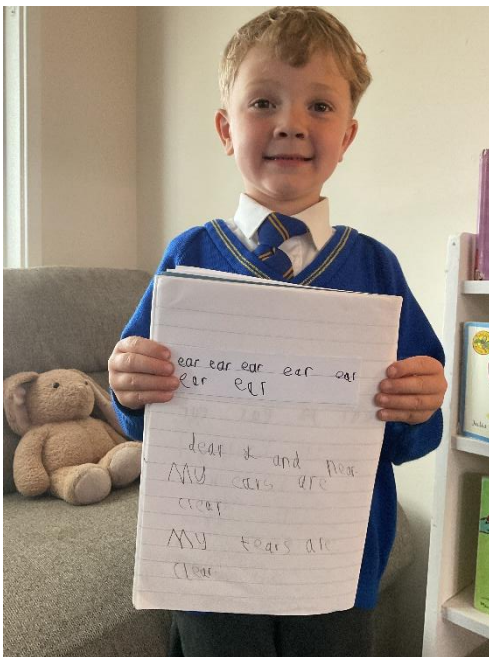 ear ear ear ear ear
ear ear
dear & and near
My ears are
clear
My tears are
clear